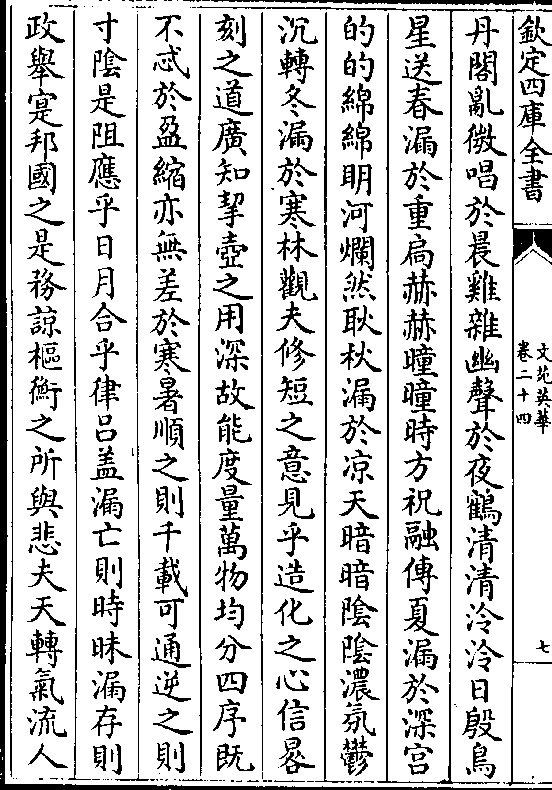 欽定四庫全書
文苑英華
卷二十四
七
丹閣亂微唱於晨雞雜幽聲於夜鶴清清泠泠日殷鳥
星送春漏於重扃赫赫曈曈時方祝融傳夏漏於深宮
的的綿綿明河爛然耿秋漏於凉天暗暗陰陰濃氛鬱
沉轉冬漏於寒林觀夫修短之意見乎造化之心信晷
刻之道廣知挈壺之用深故能度量萬物均分四序既
不忒於盈縮亦無差於寒暑順之則千載可通逆之則
寸陰是阻應乎日月合乎律呂盖漏亡則時昧漏存則
政舉寔邦國之是務諒樞衡之所與悲夫天轉氣流人